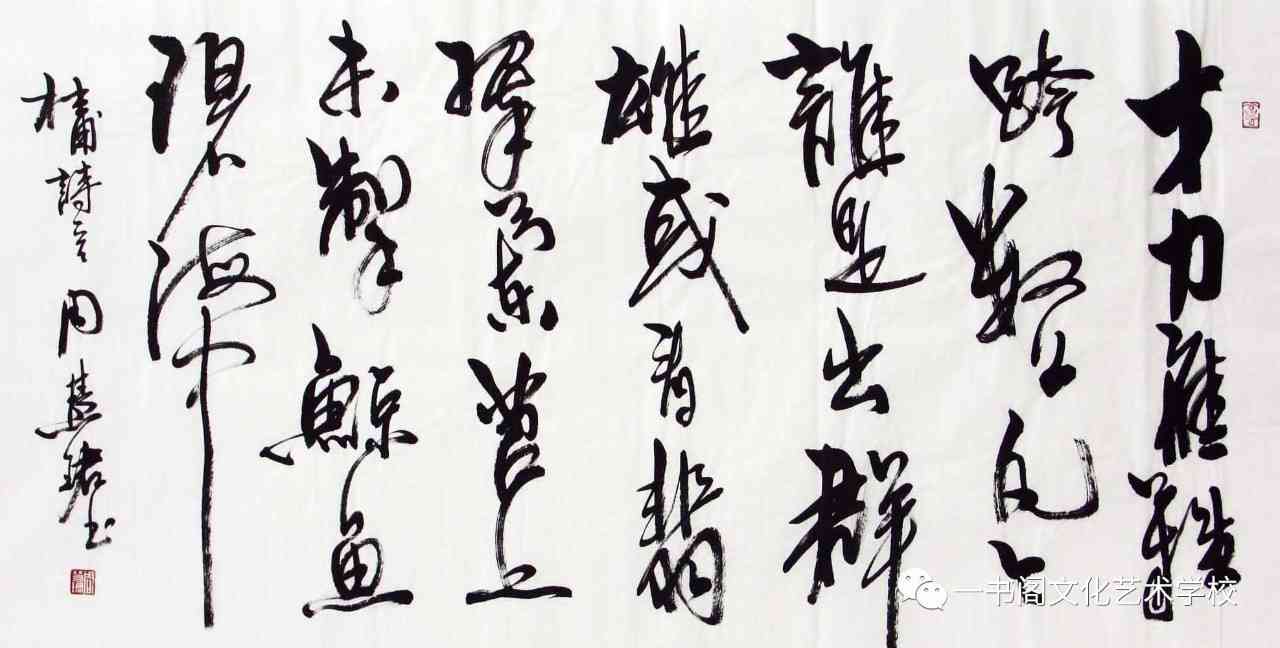 才力應難
跨數公凡今
誰是出群
雄或看翡
翠蘭苕上
未掣鯨魚
碧海中
杜甫詩 周慧珺书
一书阁文化艺术学校